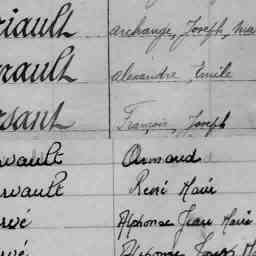 riault archange, Joseph, ma
rault alexandre, Emile
rsant François, Joseph
rvault Armand
rvault René Marie
rvé Alphonse Jean Marie
rvé Alphonse